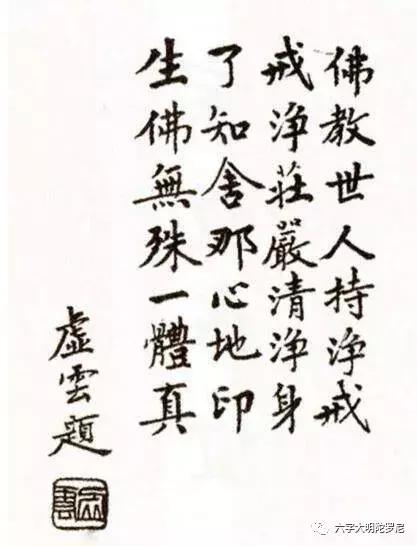 佛教世人持淨戒
戒淨莊嚴清淨身
了知舍那心地印
生佛無殊一體真
虛雲題
六字大明陀罗尼